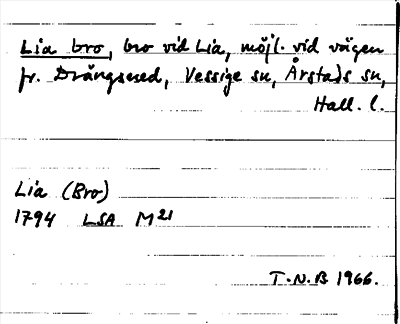 Lia bro, bro vid Lia, möjl. vid vägen
fr. Drängsered, Vessige sn, Årstads sn,
Hall. l.
Lia (Bro)
1794 LSA M21
T.N.B 1966.